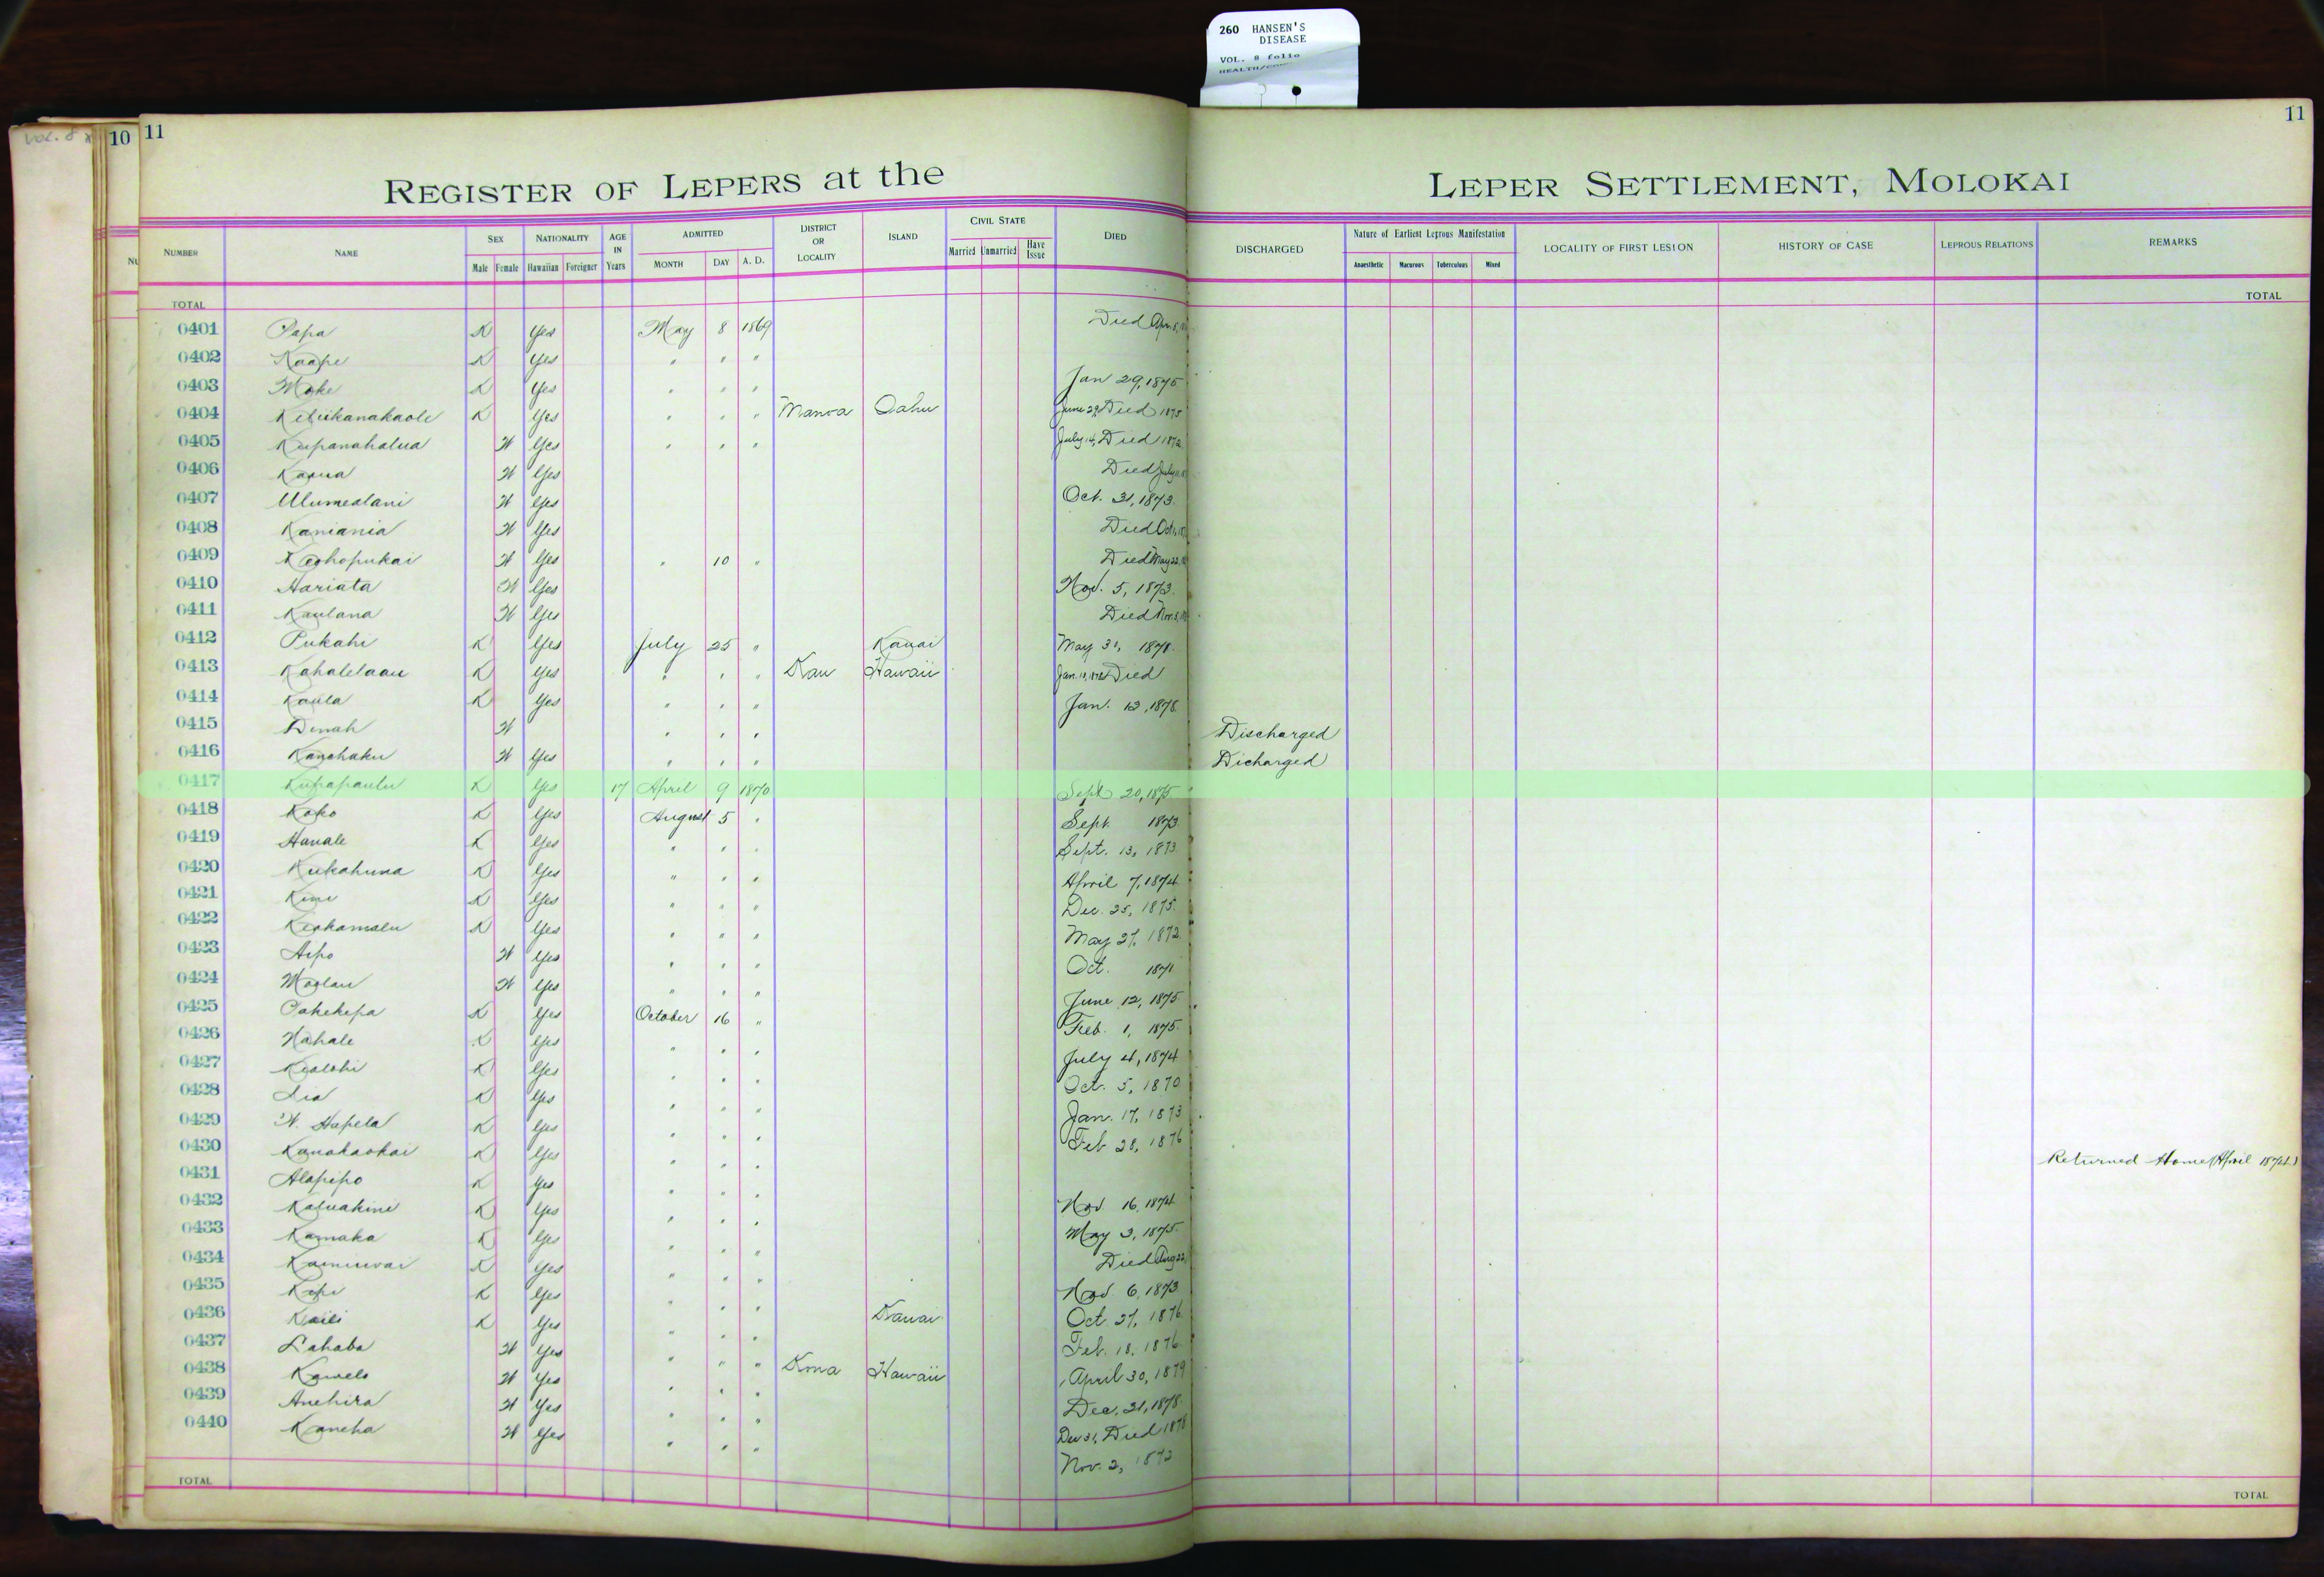 260 HANSEN'S
DISEASE
VOL. 8 folio
VOL. 8
10 11
11
REGISTER OF LEPERS at the LEPER SETTLEMENT, MOLOKAI
NUMBER NAME SEX NATIONALITY AGE IN Years ADMITTED DISTRICT OR LOCALITY ISLAND CIVIL STATE DIED DISCHARGED Nature of Earliest Leprous Manifestation LOCALITY OF FIRST LESION HISTORY OF CASE LEPROUS RELATIONS REMARKS
Male Female Hawaiian Foreigner MONTH DAY A. D. Married Unmarried Have Issue Anaesthetic Macurous Tuberculous Mixed
TOTAL TOTAL
0401 Papa K Yes May 8 1869 Died Apr. 8,
0402 Kaape K Yes " " "
0403 Moke K Yes " " " Jan 29, 1875
0404 Keliikanakaole K Yes " " " Manoa Oahu June 29, Died 1875
0405 Kupanahalua W Yes " " " July 14, Died 1872
0406 Kaoua W Yes Died July
0407 Ulumealani W Yes Oct. 31, 1873.
0408 Kaniania W Yes Died Oct
0409 Keohopukai W Yes " 10 " Died May 22,
0410 Hariata W Yes Nov. 5, 1873.
0411 Kaulana W Yes Died Nov. 3,
0412 Pukahi K Yes July 25 " Kauai May 31, 1878.
0413 Kahalelaau K Yes " " " Kau Hawaii Jan. Died
0414 Kaula K Yes " " " Jan. 13, 1878.
0415 Dinah W " " " Discharged
0416 Kanehaku W Yes " " " Dicharged
0417 Kupapaulu K Yes 17 April 9 1870 Sept 20, 1875.
0418 Koko K Yes August 5 " Sept. 1873
0419 Hanale K Yes " " " Sept. 13, 1873
0420 Kukahuna K Yes " " " April 7, 1874
0421 Kimi K Yes " " " Dec. 25, 1875.
0422 Keohamalu K Yes " " " May 27, 1872
0423 Aipo W Yes " " " Oct. 1871
0424 Moolau W Yes " " " June 12, 1875
0425 Pakekepa K Yes October 16 " Feb. 1, 1875.
0426 Nahale K Yes " " " July 4, 1874
0427 Kealohi K Yes " " " Oct. 5, 1870
0428 Lia K Yes " " " Jan. 17, 1873
0429 W. Hapela K Yes " " " Feb 28, 1876
0430 Kanakaokai K Yes " " " Returned Home (April 1874)
0431 Alapipo K Yes " " " Nov 16, 1874
0432 Kaluakini K Yes " " " May 3, 1875.
0433 Kamaka K Yes " " " Died Aug 22,
0434 Kainiwai K Yes " " " Nov. 6, 1873
0435 Kepi K Yes " " " Kauai Oct. 27, 1876
0436 Kaili K Yes " " " Feb. 18, 1876
0437 Lahaba W Yes " " " Kona Hawaii April 30, 1879
0438 Kawelo W Yes " " " Dec. 31, 1878.
0439 Anehira W Yes " " " Dec 31, Died 1878
0440 Kaneha W Yes " " " Nov. 2, 1872
TOTAL TOTAL